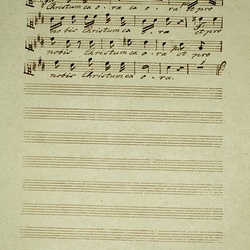 Christum ca o - ra ca o - ra et pro
nobis Christum ca o - ra et pro
nobis Christum ca o - ra.